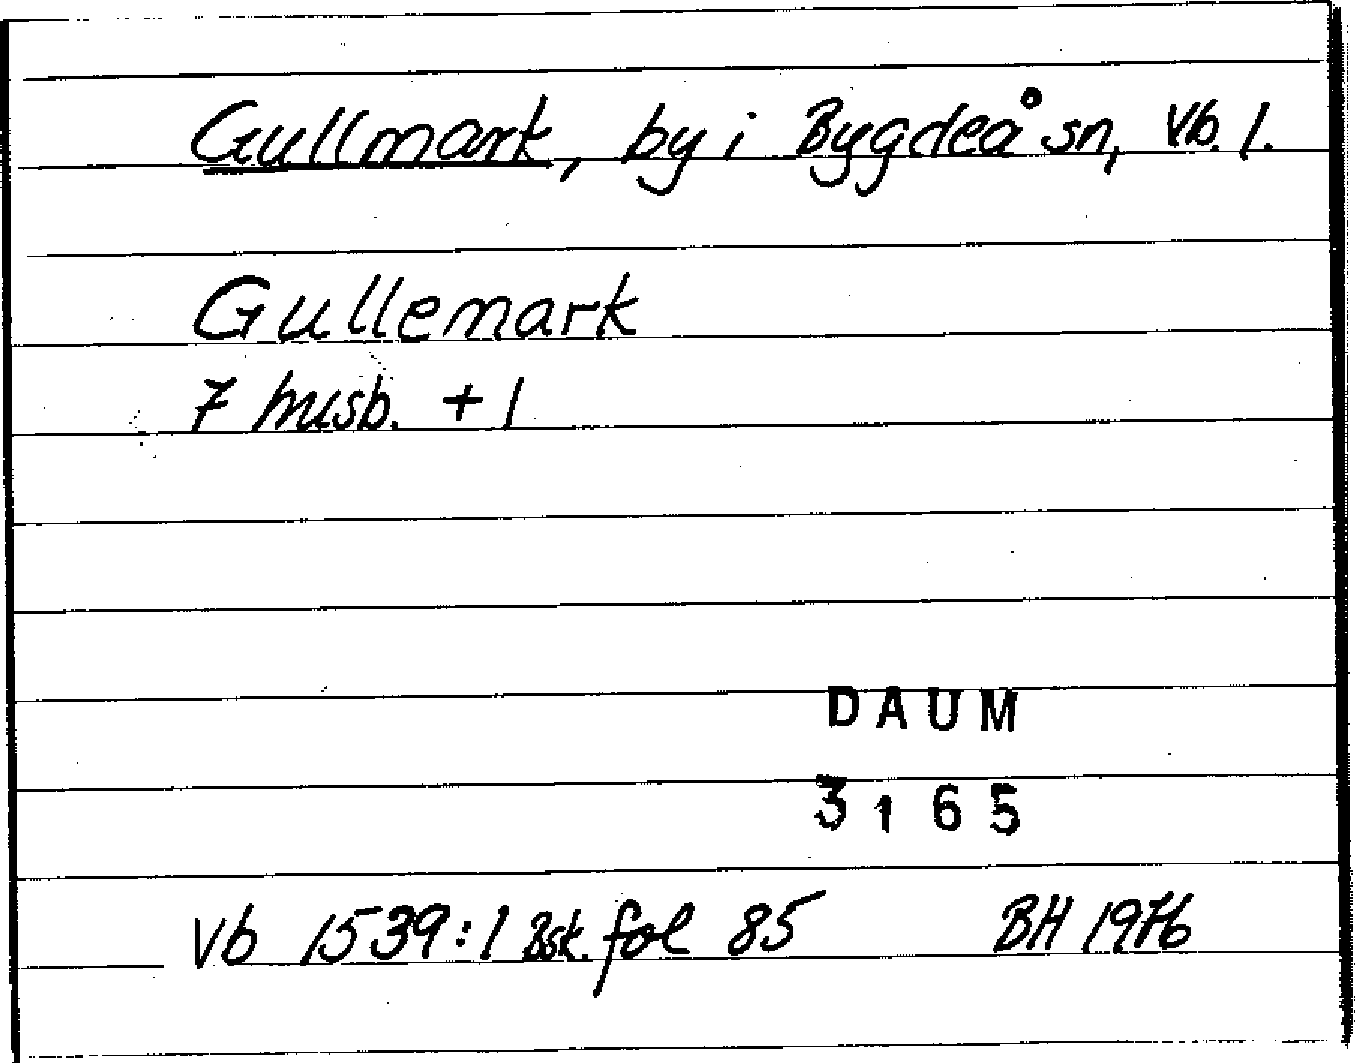 Gullmark, by i Bygdeå sn, Vb. l.
Gullemark
7 husb. + 1
DAUM
3165
Vb 1539:1 Bsk. fol 85 BH 1976